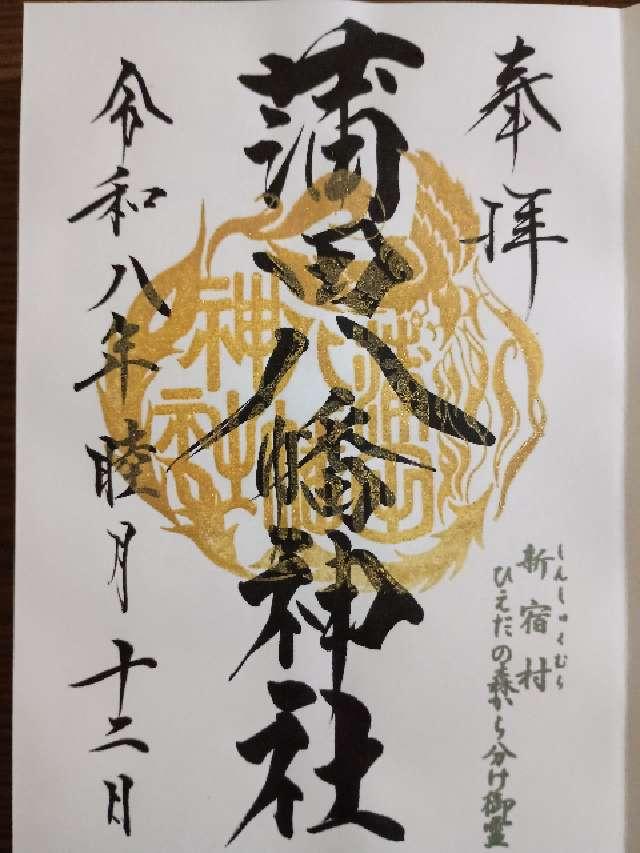 奉拝
蒲田八幡神社
令和八年睦月十二日
しんしゅくむら
新宿村
ひえだの森から分け御霊
蒲田
八幡
神社